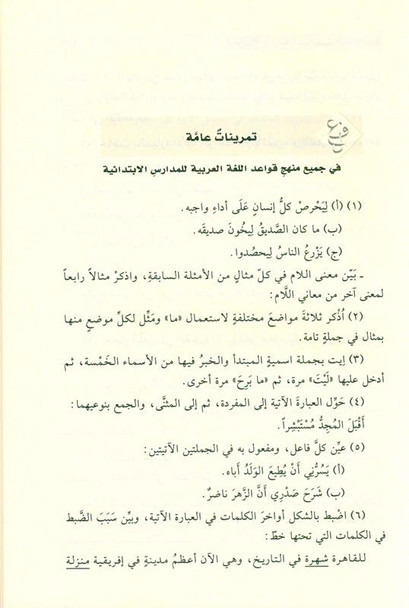 تمرينات عامّة
في جميع منهج قواعد اللغة العربية للمدارس الابتدائية
(١) (أ) لِيَحْرصْ كلُّ إنسانٍ عَلَى أداءِ واجبه.
(ب) ما كان الصَّديقُ لِيخُونَ صديقَه.
(ج) يَزْرعُ الناسُ لِيحصُدوا.
ـ بَيّن معنى اللام في كلّ مثالٍ من الأمثلة السابقةِ، واذكرْ مثالاً رابعاً
لمعنى آخر من معاني اللَّام:
(٢) اُذْكر ثلاثةَ مواضعَ مختلفةٍ لاستعمال «ما» ومَثِّل لكلِّ موضعٍ منها
بمثال في جملةٍ تامة.
(٣) إيت بجملة اسميةٍ المبتدأ والخبرُ فيها من الأسماء الخَمْسة، ثم
أدخل عليها «لَيْتَ» مرة، ثم «ما بَرِحَ» مرة أخرى.
(٤) حَوِّل العبارةَ الآتية إلى المفردة، ثم إلى المثنَّى، والجمع بنوعيهما:
أَقْبَلَ المُجِدُّ مُسْتَبْشِراً.
(٥) عيِّن كلَّ فاعل، ومفعول به في الجملتين الآتيتين:
(أ) يَسُرُّنِي أَنْ يُطِيعَ الوَلَدُ أَباه.
(ب) شَرَحَ صَدْرِي أَنَّ الزَّهرَ ناضرٌ.
(٦) اضْبط بالشكل أواخرَ الكلمات في العبارة الآتية، وبيِّن سَبَبَ الضَّبط
في الكلمات التي تحتها خطّ:
للقاهرة شهرة في التاريخ، وهي الآن أعظمُ مدينةٍ في إفريقية منزلة